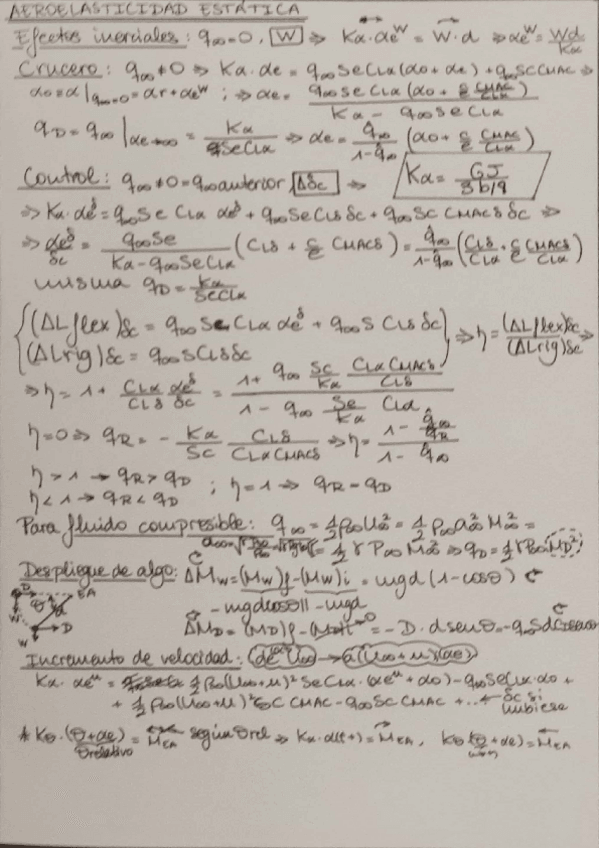 AEROELASTICIDAD ESTÁTICA
Efectos inerciales: q∞=0, W ⇒ Kα·αe^W = W·d ⇒ αe^W = Wd/Kα
Crucero: q∞≠0 ⇒ Kα·αe = q∞SeCLα(αo+αe) + q∞SCCMAC ⇒
αo=α|q∞=0 = αr+αe^W ; ⇒ αe = q∞SeCLα(αo + c/e CMAC/CLα) / Kα - q∞SeCLα
qD = q∞|αe→∞ = Kα/SeCLα ⇒ αe = q̂∞/1-q̂∞ (αo + c/e CMAC/CLα)
Control: q∞≠0=q∞anterior, Δδc ⇒ Kα = GJ/3b/9
⇒ Kα·αe^δ = q∞Se CLα αe^δ + q∞SeCLδ δc + q∞Sc CMACδ δc ⇒
⇒ αe^δ/δc = q∞Se / Kα-q∞SeCLα (CLδ + c/e CMACδ) = q̂∞/1-q̂∞ (CLδ/CLα + c/e CMACδ/CLα)
misma qD = Kα/SeCLα
(ΔLflex)δc = q∞SCLα αe^δ + q∞S CLδ δc ⇒ η = (ΔLflex)δc/(ΔLrig)δc ⇒
(ΔLrig)δc = q∞SCLδδc
⇒ η = 1 + CLα/CLδ αe^δ/δc = 1 + q∞ Sc/Kα CLαCMACδ/CLδ / 1 - q∞ Se/Kα CLα
η=0 ⇒ qR = - Kα/Sc CLδ/CLαCMACδ ⇒ η = 1 - q∞/qR / 1 - q̂∞
η > 1 → qR > qD ; η=1 ⇒ qR = qD
η < 1 → qR < qD
Para fluido compresible: q∞ = 1/2 ρ∞U∞² = 1/2 ρ∞a∞²M∞² =
= 1/2 γ P∞ M∞² ⇒ qD = 1/2 γ P∞ MD²
Despliegue de algo: ΔMW = (MW)f - (MW)i = mgd(1-cosθ)
-mgdcosθ - -mgd
ΔMD = (MD)f - (MD)i = -D·d senθ = -q∞Sd
D θ EA d W D W
Incremento de velocidad: αe(U∞) → a(U∞+u)(αe)
Kα·αe^u = 1/2 ρ∞(U∞+u)² SeCLα·(αe^u + αo) - q∞SeCLα·αo +
+ 1/2 ρ∞(U∞+u)² SC CMAC - q∞Sc CMAC + ... ← δc si
hubiese
* Kθ·(θ+αe) = MEA según θrel ⇒ Kα·α(t) = MEA, Kθ(θ+αe) = MEA
θrelativo